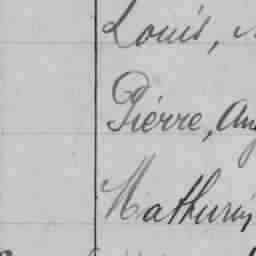 Louis,
Pierre, Aug
Mathurin